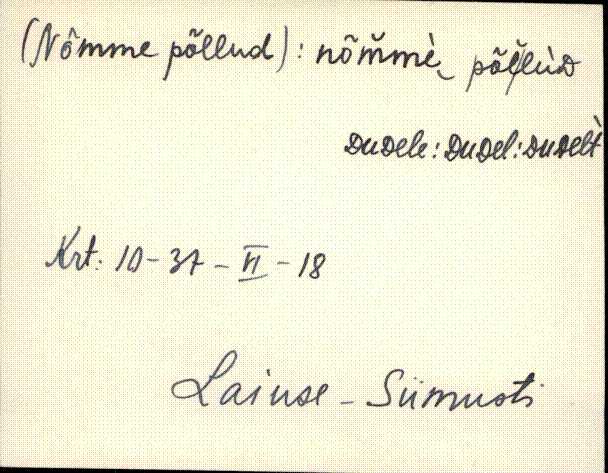 (Nõmme põllud): nõm̆mè‿ põl̆lùᴅ
ᴅuᴅele: ᴅuᴅel: ᴅuᴅelt̀
Krt: 10-37-VI-18
Laiuse - Siimusti